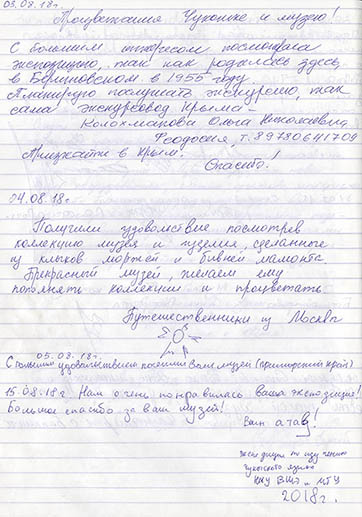 03.08.18г.
Процветания Чукотке и музею!
С большим интересом посмотрела
экспозицию, так как родилась здесь,
в Беринговском в 1955 году.
Планирую послушать экскурсию, так
сама экскурсовод Крыма -
Колохманова Ольга Николаевна,
Феодосия, т. 89780641709
Приезжайте в Крым!
Спасибо!
04.08.18г.
Получили удовольствие посмотрев
коллекцию музея и изделия, сделанные
из клыков моржей и бивней мамонта.
Прекрасный музей, желаем ему
пополнять коллекции и процветать
Путешественники из Москвы
05.08.18г.
С большим удовольствием посетили Ваш музей (Приморский край)
15.08.18г. Нам очень понравилась Ваша экспозиция!
Большое спасибо за ваш музей!
экспедиция по изучению
чукотского языка
НИУ ВШЭ и МГУ
2018г.